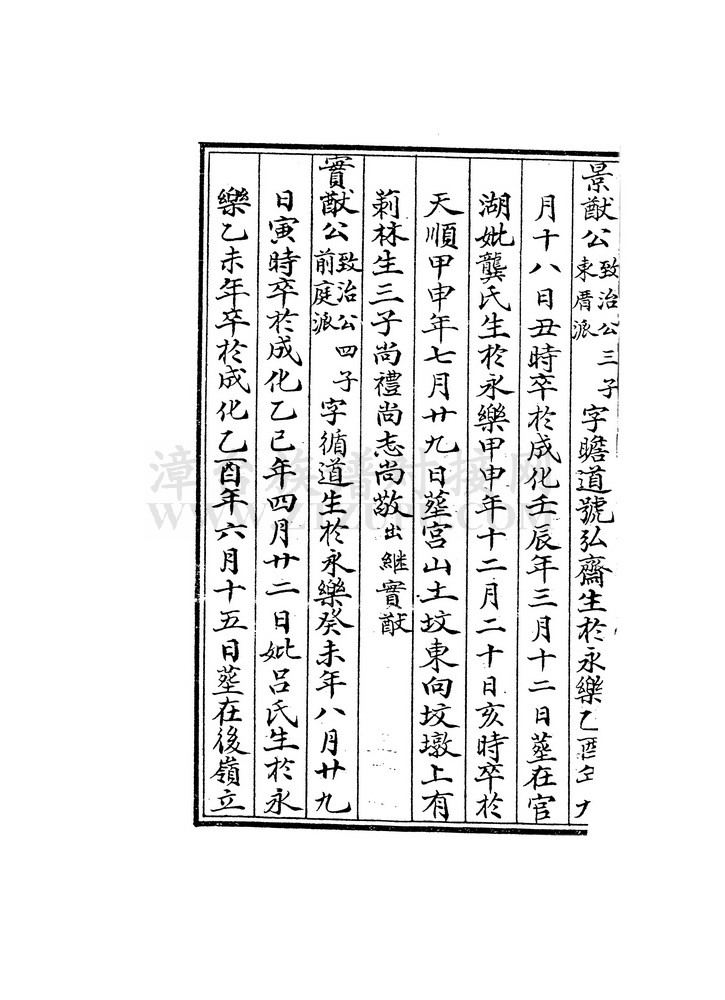 景猷公致治公三子東厝派字瞻道號弘齋生於永樂乙酉年十
月十八日丑時卒於成化壬辰年三月十二日葬在官
湖妣龔氏生於永樂甲申年十二月二十日亥時卒於
天順甲申年七月廿九日葬宮山土坟東向坟墩上有
莿林生三子尚禮尚志尚敬出繼實猷
實猷公致治公四子前庭派字循道生於永樂癸未年八月廿九
日寅時卒於成化乙巳年四月廿二日妣呂氏生於永
樂乙未年卒於成化乙酉年六月十五日葬在後嶺立